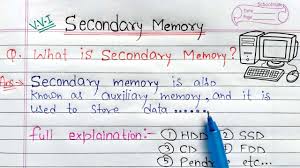 V.V.I
Secondary Memory
Q. What is Secondary Memory?
Ans:- Secondary memory is also
known as auxiliary memory, and it is
used to store data ......
full explaination:- ① HDD ② SSD
③ CD ④ FDD
⑤ Pendrive etc...